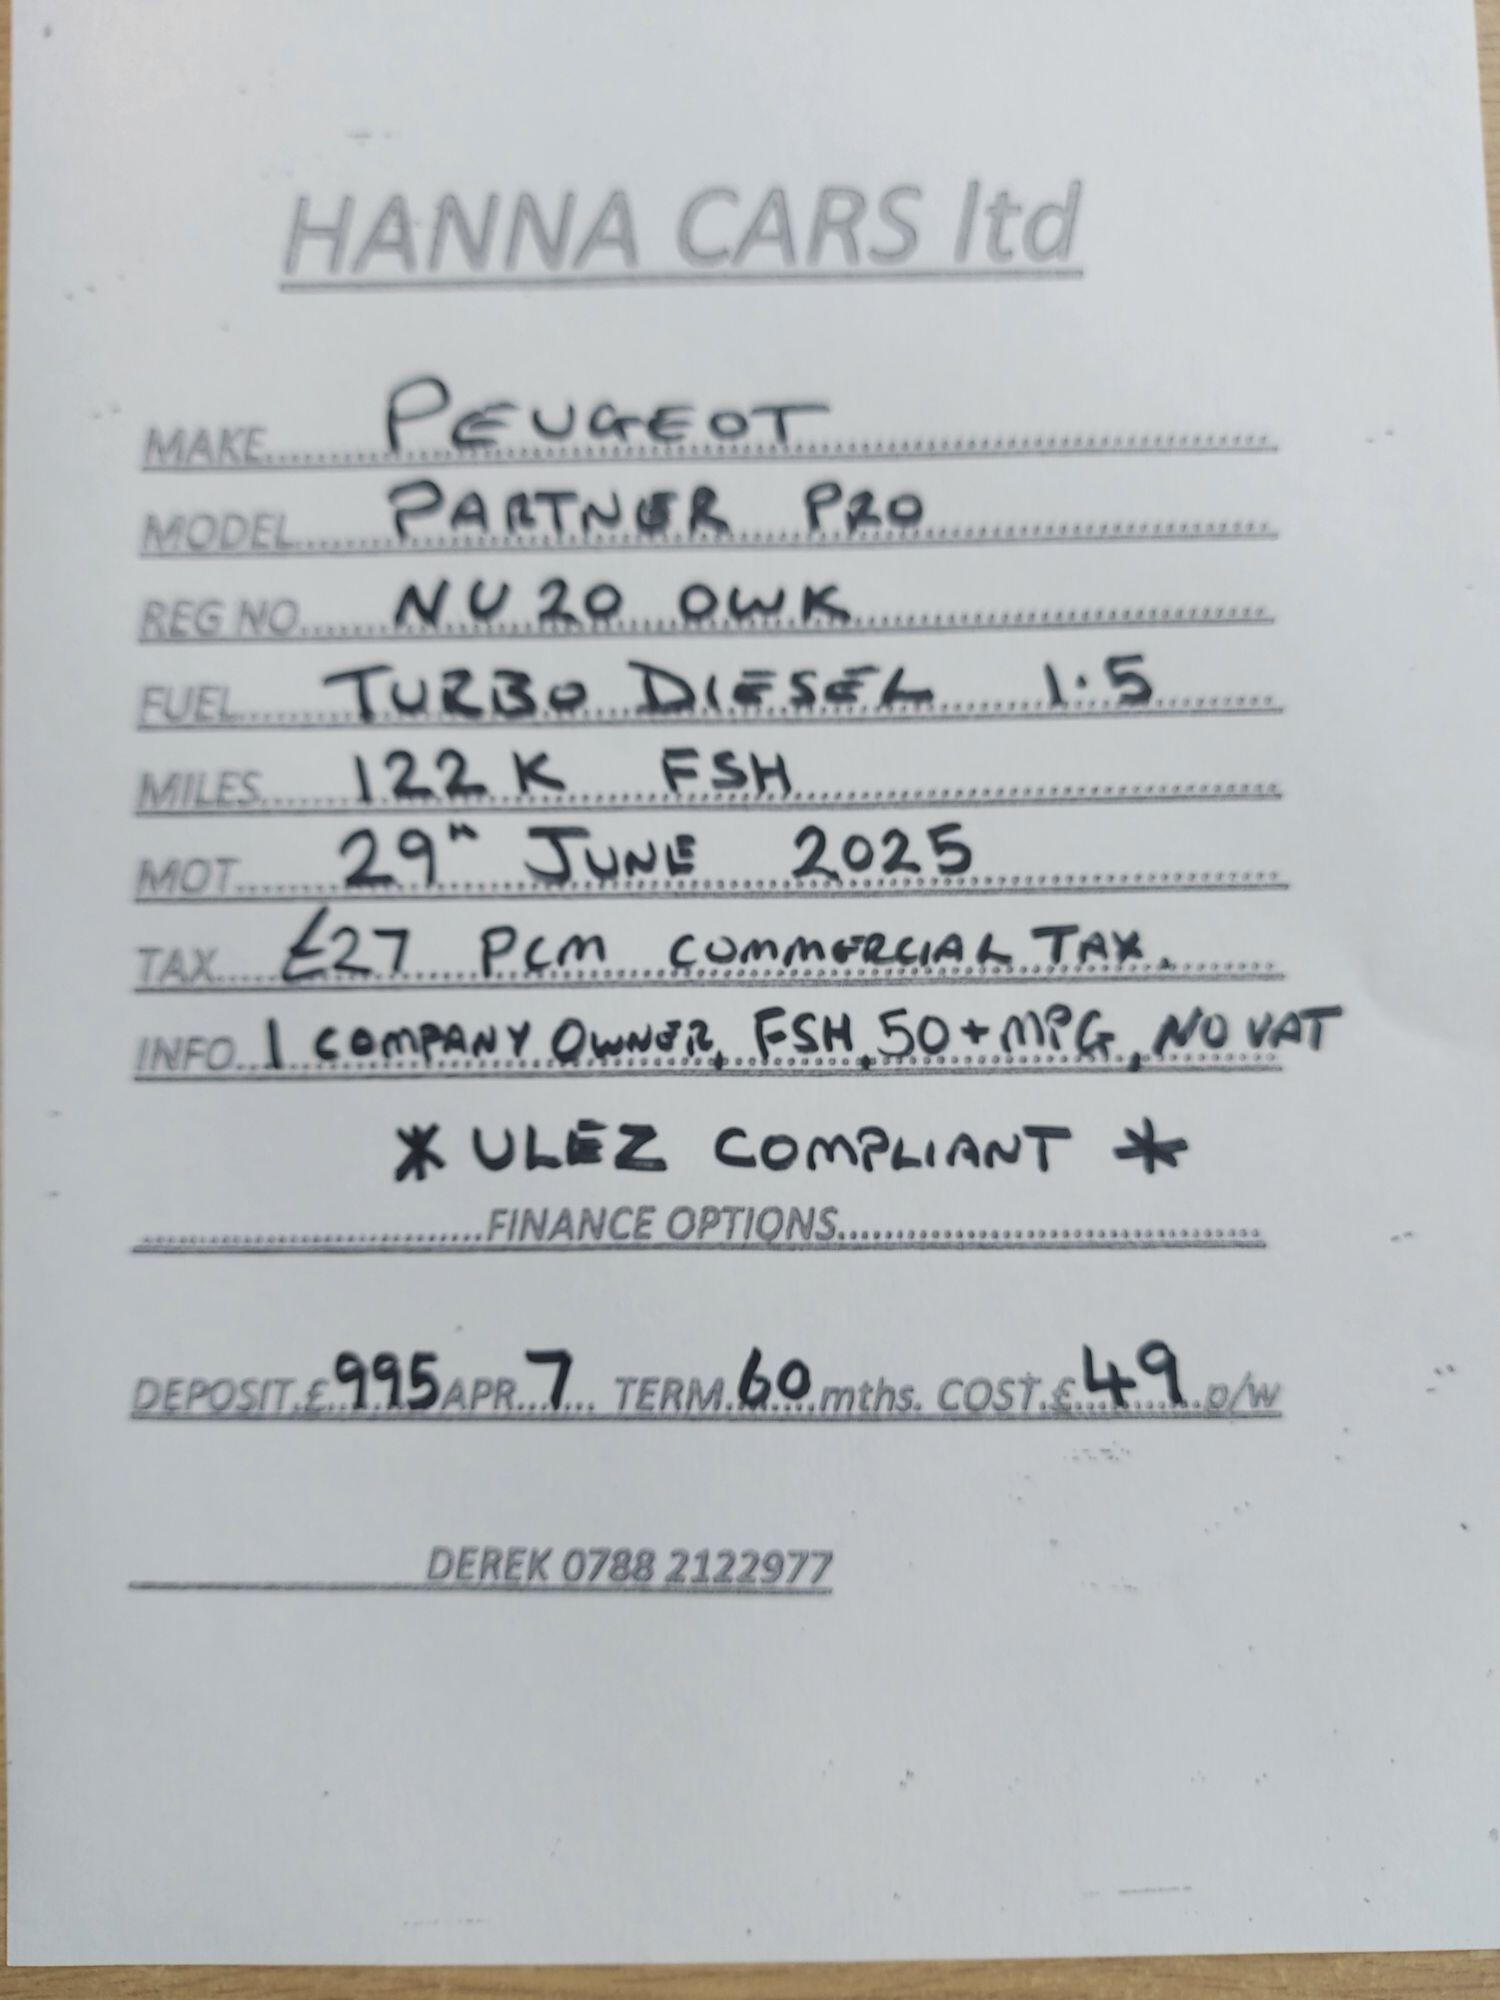 HANNA CARS ltd
MAKE.......PEUGEOT.......
MODEL.......PARTNER PRO.......
REG NO.......NU20 OWK.......
FUEL.......TURBO DIESEL 1.5.......
MILES.......122K FSH.......
MOT.......29TH JUNE 2025.......
TAX.......£27 PCM COMMERCIAL TAX.......
INFO...1 COMPANY OWNER, FSH, 50+MPG, NO VAT
* ULEZ COMPLIANT *
.......FINANCE OPTIONS.......
DEPOSIT.£..995 APR...7... TERM.60.mths. COST.£..49..p/w
DEREK 0788 2122977